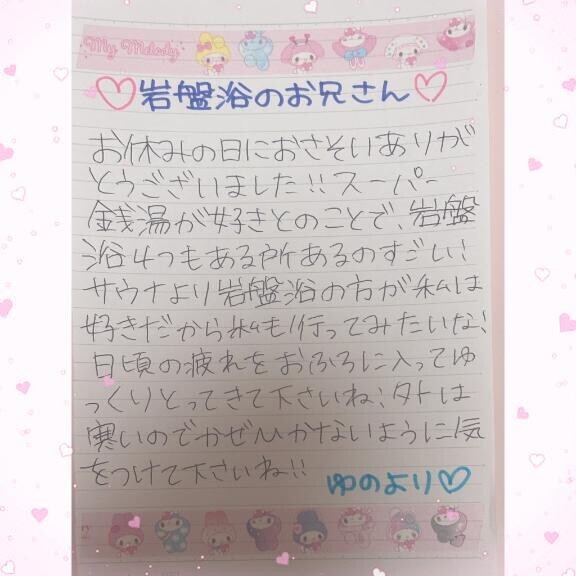 My Melody
♡岩盤浴のお兄さん♡
お休みの日におさそいありが
とうございました!!スーパー
銭湯が好きとのことで、岩盤
浴4つもある所あるのすごい!
サウナより岩盤浴の方が私は
好きだから私も行ってみたいな、
日頃の疲れをおふろに入ってゆ
っくりとってきて下さいね、外は
寒いのでかぜひかないように気
をつけて下さいね!!
ゆのより♡